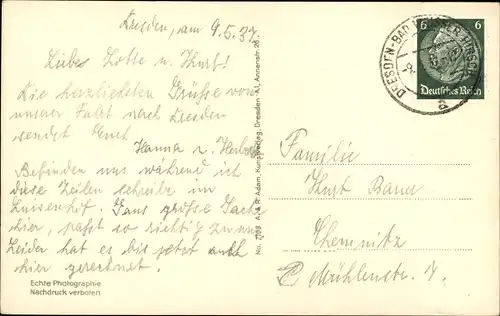 Dresden, am 9.5.37.
Liebe Lotte u. Kurt!
Die herzlichsten Grüße von
unserer Fahrt nach Dresden
sendet Euch
Hanna u. Herbert
Befinden uns während ich
diese Zeilen schreibe im
Luisenhof. Ganz große Sache
hier, paßt so richtig zu uns
Leider hat es bis jetzt auch
hier geregnet.
Echte Photographie
Nachdruck verboten
No. 798 A. & R. Adam, Kunstverlag, Dresden-A.1, Annenstr. 26
DRESDEN-BAD WEISSER HIRSCH
a
6 6
Deutsches Reich
Familie
Kurt Bauer
Chemnitz
Mühlenstr.